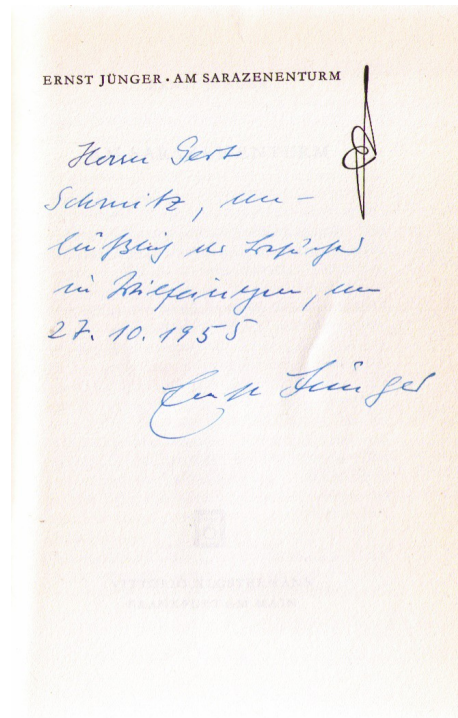 ERNST JÜNGER · AM SARAZENENTURM
Herrn Gert
Schmitz, an-
läßlich des Besuches
in Wilflingen, am
27. 10. 1955
Ernst Jünger